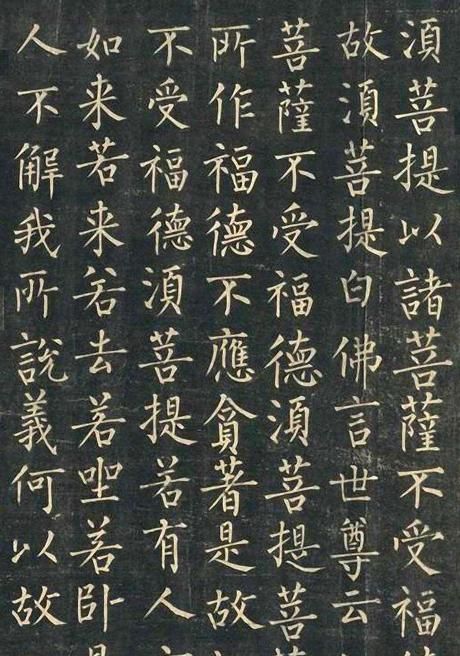 須菩提以諸菩薩不受福
故須菩提白佛言世尊云
菩薩不受福德須菩提菩
所作福德不應貪著是故
不受福德須菩提若有人
如来若来若去若坐若卧
人不解我所說義何以故